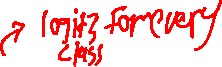 logits for every
class